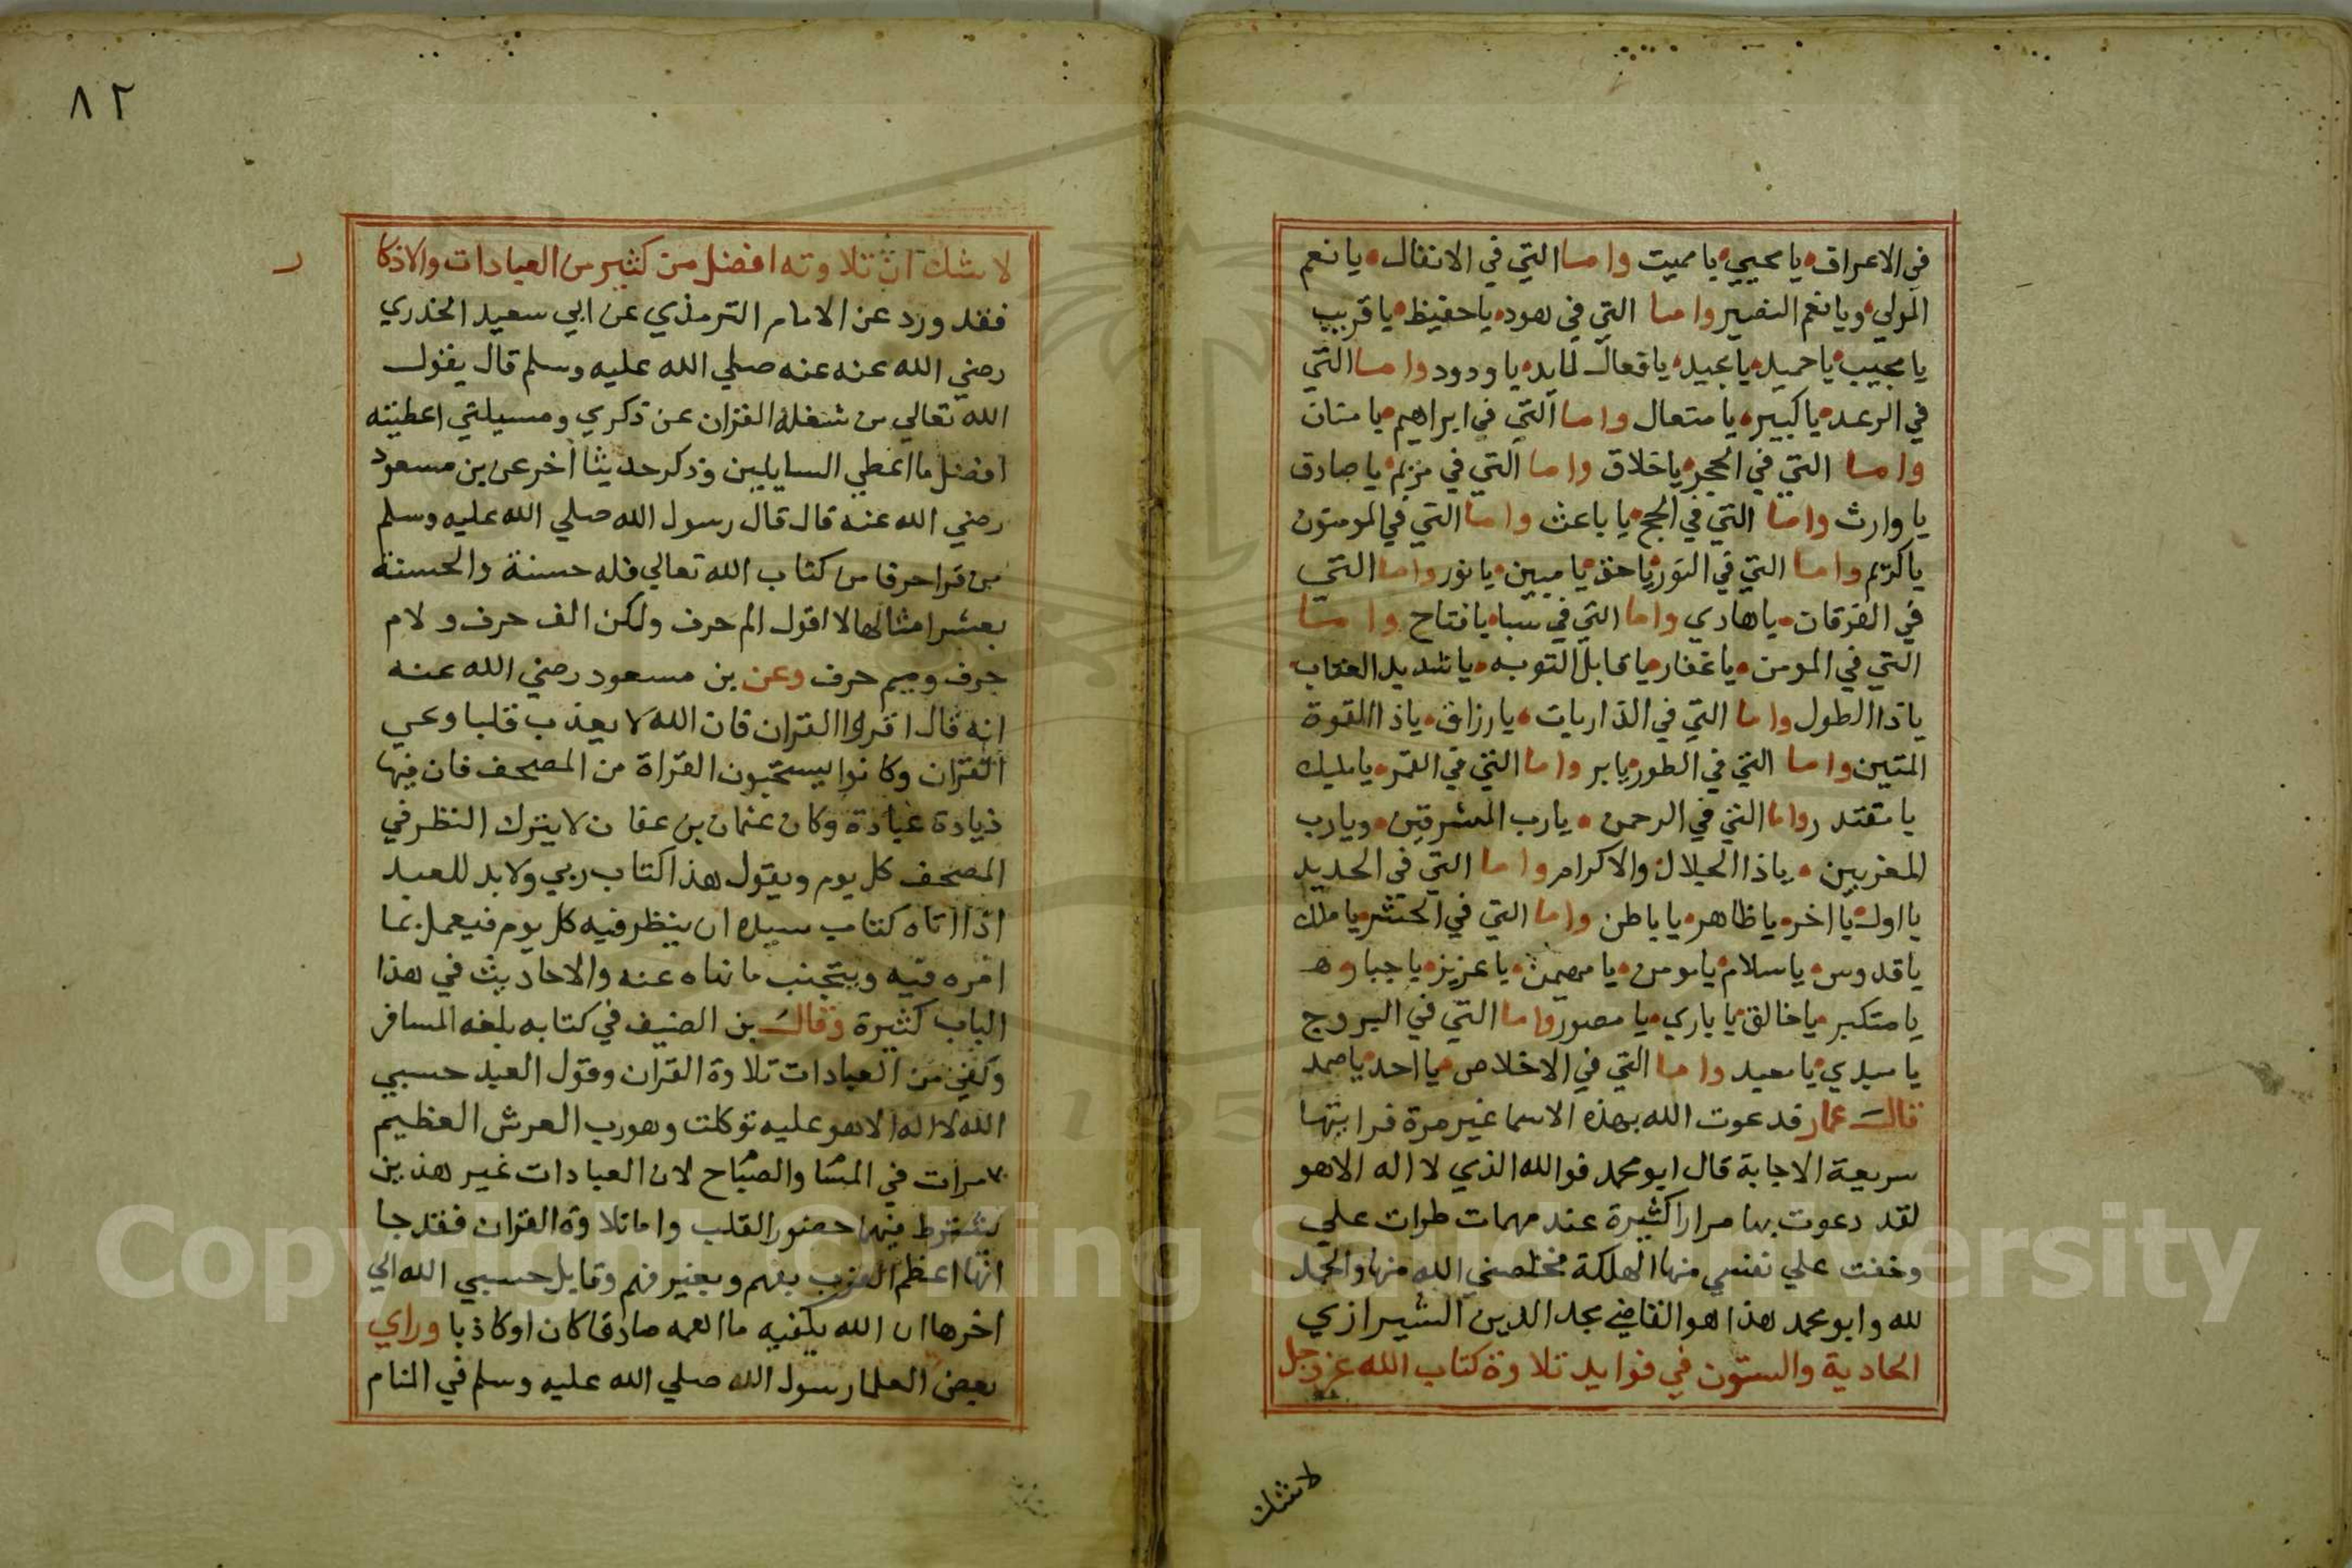 في الاعراف يا محيي يا مميت واما التي في الانفال يا نعم
المولي ويا نعم النصير واما التي في هود يا حفيظ يا قريب
يا مجيب يا حميد يا مجيد يا فعال لمايريد يا ودود واما التي
في الرعد يا كبير يا متعال واما التي في ابراهيم يا منان
واما التي في الحجر يا خلاق واما التي في مريم يا صادق
يا وارث واما التي في الحج يا باعث واما التي في المومنون
يا كريم واما التي في النور يا حق يا مبين يا نور واما التي
في الفرقان يا هادي واما التي في سبا يا فتاح واما
التي في المومن يا غفار يا قابل التوبه يا شديد العقاب
يا ذا الطول واما التي في الذاريات يا رزاق يا ذا القوة
المتين واما التي في الطور يا بر واما التي في القمر يا مليك
يا مقتدر واما التي في الرحمن يا رب المشرقين ويا رب
المغربين يا ذا الجلال والاكرام واما التي في الحديد
يا اول يا اخر يا ظاهر يا باطن واما التي في الحشر يا ملك
يا قدوس يا سلام يا مومن يا مهيمن يا عزيز يا جبار
يا متكبر يا خالق يا باري يا مصور واما التي في البروج
يا مبدي يا معيد واما التي في الاخلاص يا احد يا صمد
قال عمار فدعوت الله بهذه الاسما غير مرة فرايتها
سريعة الاجابة قال ابو محمد فوالله الذي لا اله الا هو
لقد دعوت بها مرارا كثيرة عند مهمات طرات علي
وخفت علي نفسي منها الهلكة فخلصني الله منها والحمد
لله وابو محمد هذا هو القاضي مجد الدين الشيرازي
الحادية والستون في فوايد تلاوة كتاب الله عز وجل
لا شك
٨٢
لا شك ان تلاوته افضل من كثير من العبادات والاذكا
ر
فقد ورد عن الامام الترمذي عن ابي سعيد الخدري
رضي الله عنه عنه صلي الله عليه وسلم قال يقول
الله تعالي من شغله القران عن ذكري ومسيلتي اعطيته
افضل ما اعطي السايلين وذكر حديثا اخر عن بن مسعود
رضي الله عنه قال قال رسول الله صلي الله عليه وسلم
من قرا حرفا من كتاب الله تعالي فله حسنة والحسنة
بعشر امثالها لا اقول الم حرف ولكن الف حرف ولام
حرف وميم حرف وعن بن مسعود رضي الله عنه
انه قال اقروا القران فان الله لا يعذب قلبا وعي
القران وكانوا يستحبون القراة من المصحف فان فيها
زيادة عبادة وكان عثمان بن عفان لا يترك النظر في
المصحف كل يوم ويقول هذا كتاب ربي ولابد للعبد
اذا اتاه كتاب سيده ان ينظر فيه كل يوم فيعمل بما
امره فيه ويتجنب ما نهاه عنه والاحاديث في هذا
الباب كثيرة وقال بن الضيف في كتابه بلغه المسافر
وكفي من العبادات تلاوة القران وقول العبد حسبي
الله لا اله الا هو عليه توكلت وهو رب العرش العظيم
٧ مرات في المسا والصباح لان العبادات غير هذين
يشترط فيها حضور القلب واما تلاوة القران فقد جا
انها اعظم القرب بفهم وبغير فهم وقايل حسبي الله الي
اخرها ان الله يكفيه ما اهمه صادقا كان او كاذبا وراي
بعض العلما رسول الله صلي الله عليه وسلم في المنام
Copyright © King Saud University